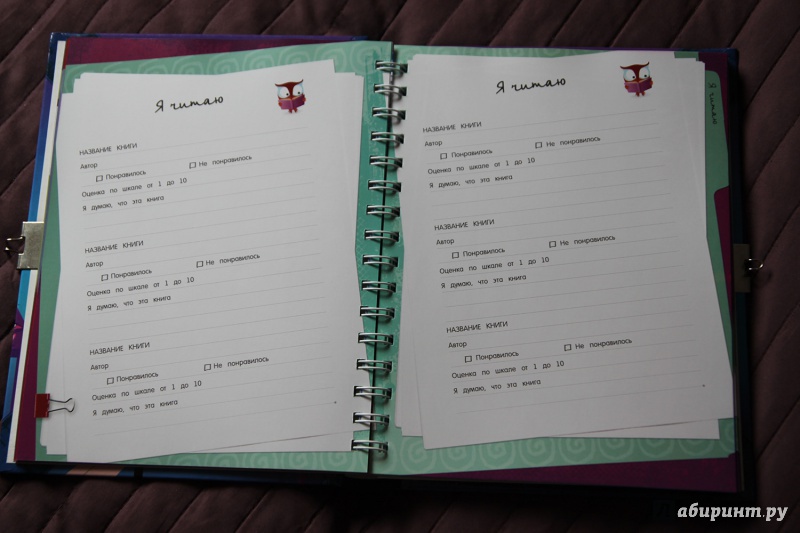 Я читаю
НАЗВАНИЕ КНИГИ
Автор
Понравилось Не понравилось
Оценка по шкале от 1 до 10
Я думаю, что эта книга
НАЗВАНИЕ КНИГИ
Автор
Понравилось Не понравилось
Оценка по шкале от 1 до 10
Я думаю, что эта книга
НАЗВАНИЕ КНИГИ
Автор
Понравилось Не понравилось
Оценка по шкале от 1 до 10
Я думаю, что эта книга
Я читаю
НАЗВАНИЕ КНИГИ
Автор
Понравилось Не понравилось
Оценка по шкале от 1 до 10
Я думаю, что эта книга
НАЗВАНИЕ КНИГИ
Автор
Понравилось Не понравилось
Оценка по шкале от 1 до 10
Я думаю, что эта книга
НАЗВАНИЕ КНИГИ
Автор
Понравилось Не понравилось
Оценка по шкале от 1 до 10
Я думаю, что эта книга
Я читаю
Лабиринт.ру